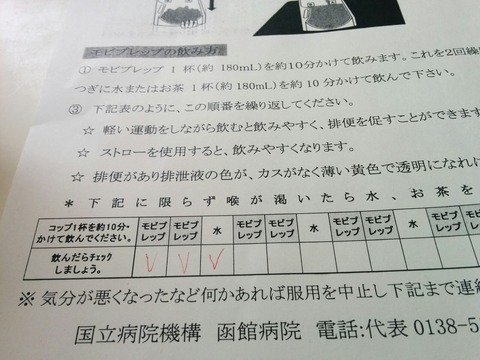 モビプレップの飲み方
① モビプレップ 1 杯(約 180mL)を約10分かけて飲みます。これを2回繰
つぎに水またはお茶 1 杯(約 180mL)を約 10 分かけて飲んで下さい。
③ 下記表のように、この順番を繰り返してください。
☆ 軽い運動をしながら飲むと飲みやすく、排便を促すことができます
☆ ストローを使用すると、飲みやすくなります。
☆ 排便があり排泄液の色が、カスがなく薄い黄色で透明になれ
* 下記に限らず喉が渇いたら水、お茶を
コップ1杯を約10分・かけて飲んでください。 モビプレップ モビプレップ 水 モビプレップ モビプレップ 水 モビプレップ モビプレップ 水 モビプレップ
飲んだらチェックしましょう。 V V V
※ 気分が悪くなったなど何かあれば服用を中止し下記まで連
国立病院機構 函館病院 電話:代表 0138-5